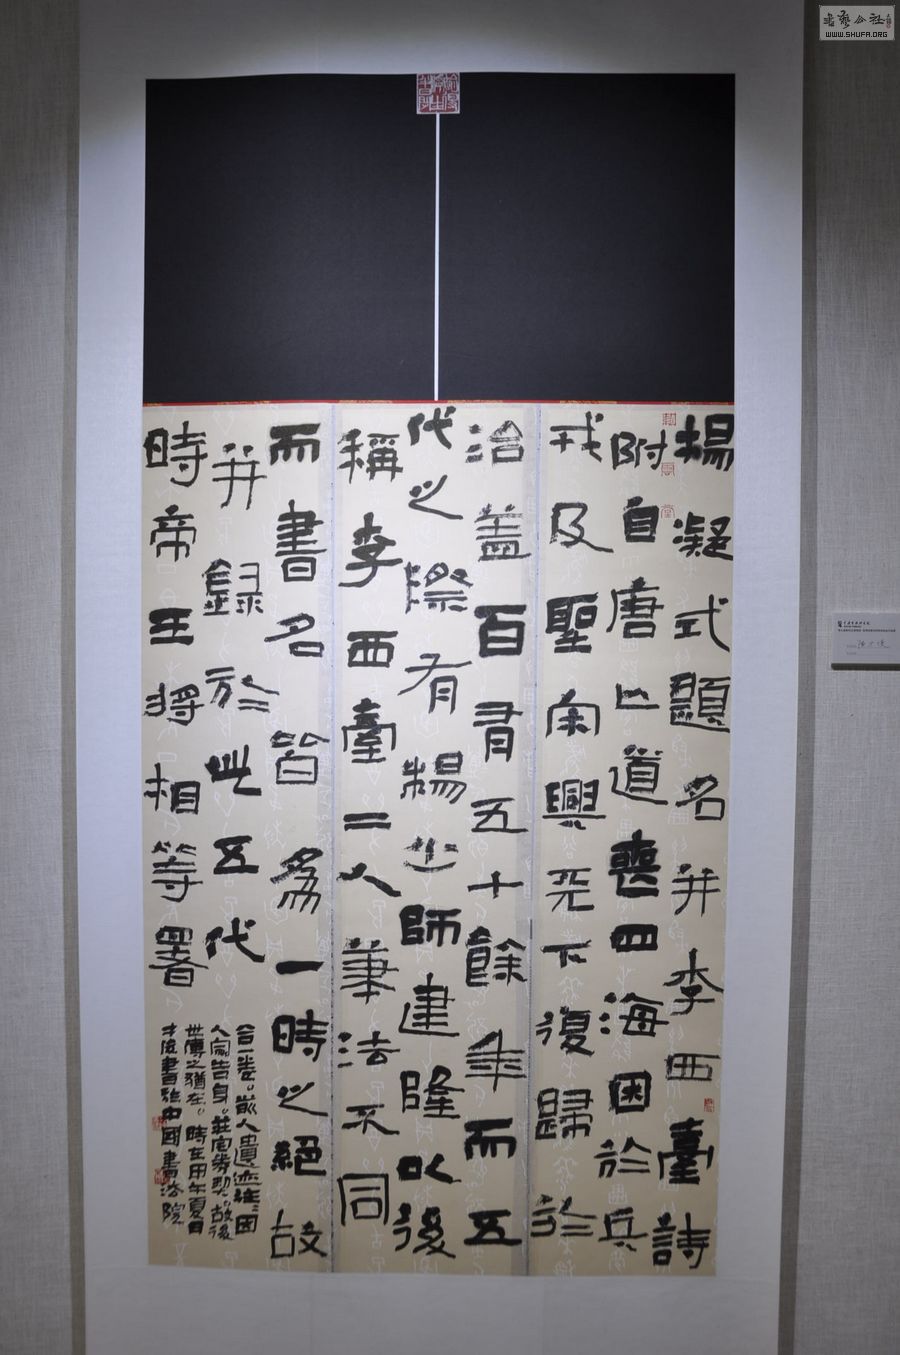 楊凝式題名并李西臺詩
附自唐亡道喪四海困於兵
戎及聖宋興天下復歸於
治蓋百有五十餘年而五
代之際有楊少師建隆以後
稱李西臺二人筆法不同
而書名皆為一時之絕故
并錄於此五代
時帝王將相等署
合一卷。
人家告身。莊宅券契。故後
世傳之猶在。時在甲午夏日
書於中國書法院
書藝公社
WWW.SHUFA.ORG